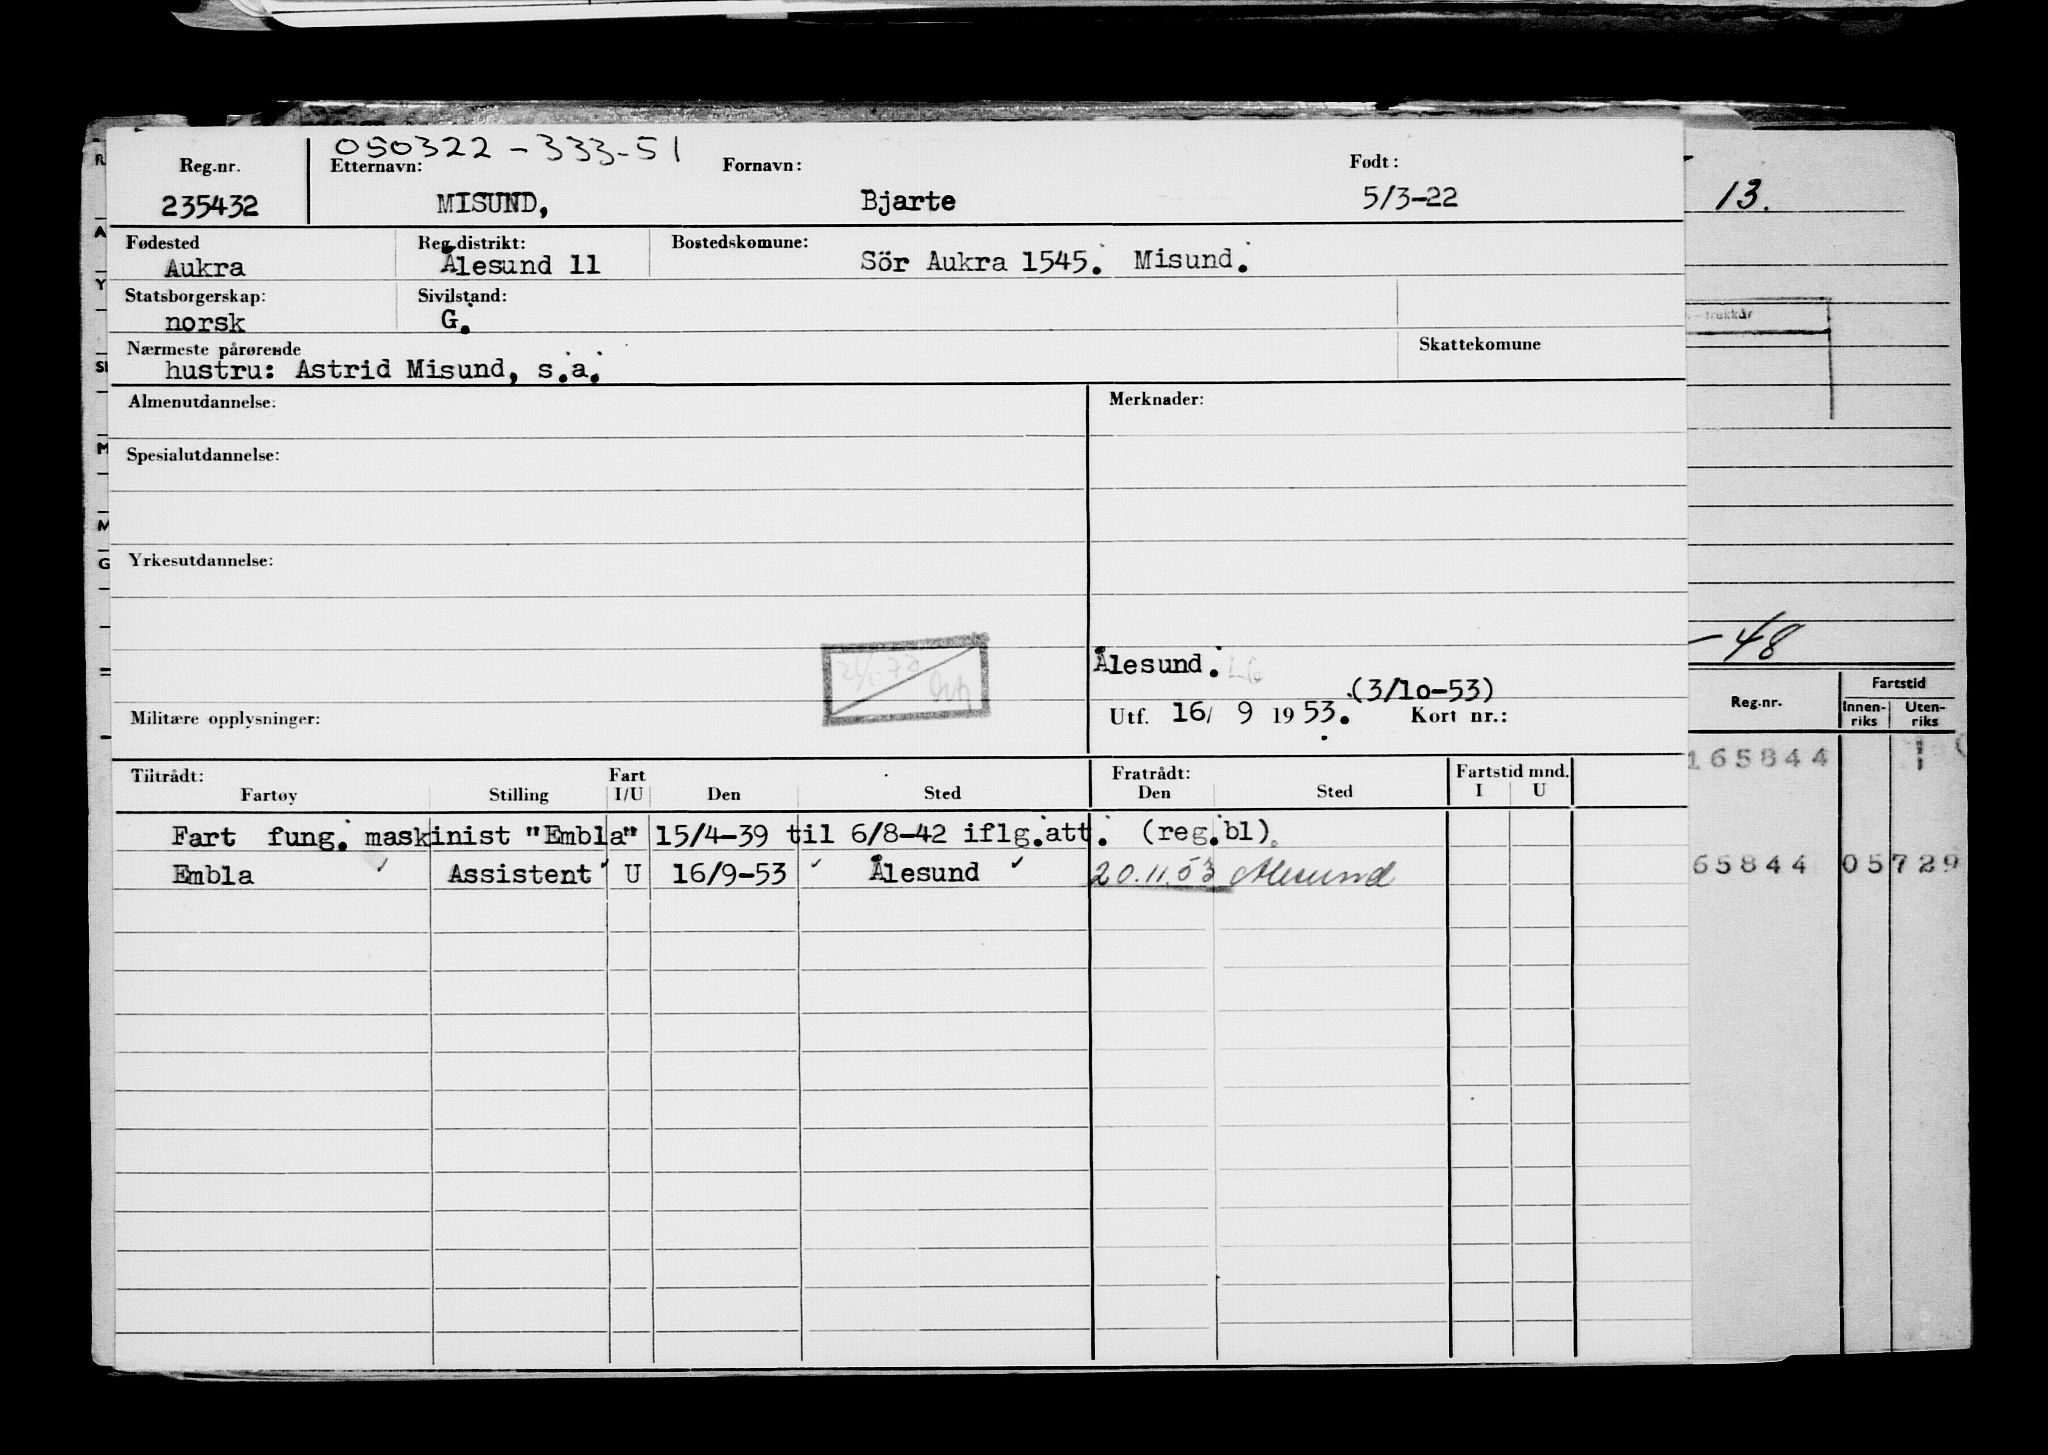 050322-333-51
Reg.nr. Etternavn: Fornavn: Født:
235432 MISUND, Bjarte 5/3-22
Fødested Reg.distrikt: Bostedskomune:
Aukra Ålesund 11 Sör Aukra 1545. Misund.
Statsborgerskap: Sivilstand:
norsk G.
Nærmeste pårørende Skattekomune
hustru: Astrid Misund, s.a.
Almenutdannelse: Merknader:
Spesialutdannelse:
Yrkesutdannelse:
Ålesund.
(3/1o-53)
Militære opplysninger: Utf. 16/ 9 19 53. Kort nr.:
Tiltrådt: Fart Fratrådt: Fartstid mnd.
Fartøy Stilling I/U Den Sted Den Sted I U
Fart fung. maskinist "Embla" 15/4-39 til 6/8-42 iflg.att. (reg.bl).
Embla Assistent U 16/9-53 Ålesund 20.11.53 Ålesund
13.
-48
Reg.nr. Fartstid
Innen-riks Uten-riks
165844 1
65844 05729
R
A
Y
M
M
G